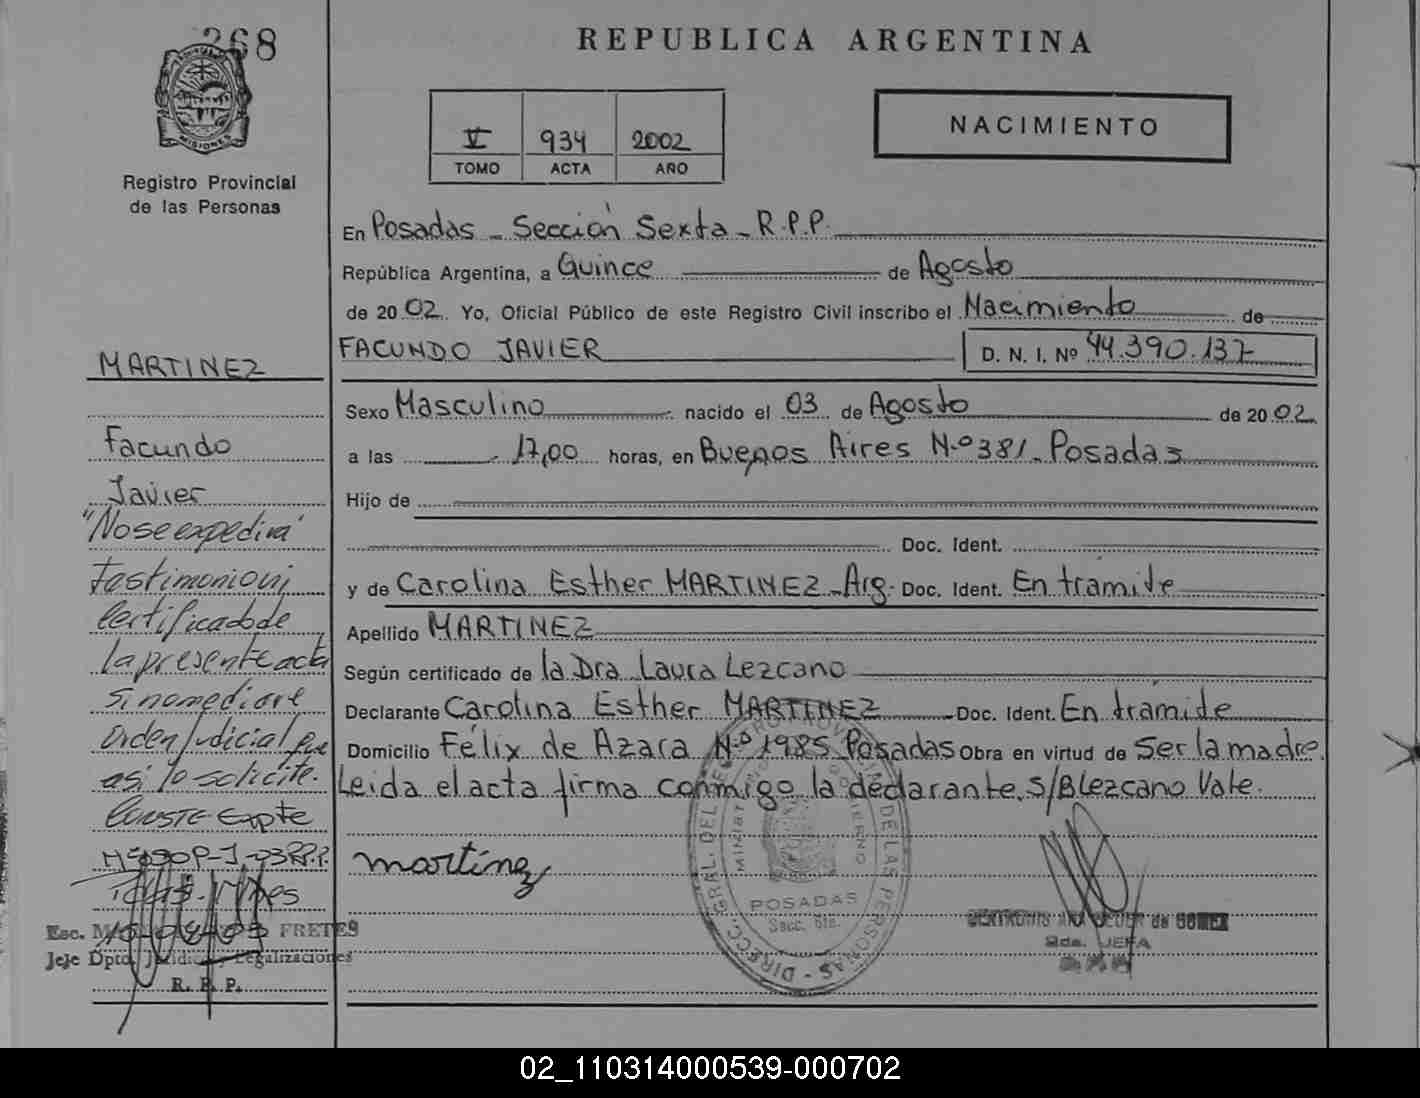 268
MISIONES
Registro Provincial
de las Personas
REPUBLICA ARGENTINA
V 934 2002
TOMO ACTA AÑO
NACIMIENTO
En Posadas - Sección Sexta - R.P.P.
República Argentina, a Quince de Agosto
de 2002. Yo, Oficial Público de este Registro Civil inscribo el Nacimiento de
FACUNDO JAVIER D. N. I. Nº 44.390.137
Sexo Masculino nacido el 03 de Agosto de 2002
a las 17,00 horas, en Buenos Aires N.º 381 - Posadas
Hijo de
Doc. Ident.
y de Carolina Esther MARTINEZ - Arg. Doc. Ident. En tramite
Apellido MARTINEZ
Según certificado de la Dra Laura Lezcano
Declarante Carolina Esther MARTINEZ Doc. Ident. En tramite
Domicilio Félix de Azara N.º 1985 Posadas Obra en virtud de Ser la madre.
Leida el acta firma conmigo la declarante. S/B Lezcano Vale.
martinez
MARTINEZ
Facundo
Javier
"No se expedirá
testimonio ni
certificado de
la presente acta
si no mediare
orden judicial que
así lo solicite.
CONSTE Expte
R.P.P.
Esc. FRETES
Jefe Dpto. Jurídico y Legalizaciones
R. P. P.
DIRECC. GRAL. DEL REG. PROVINCIAL DE LAS PERSONAS
POSADAS
Secc. 6ta.
de GOMEZ
2da. JEFA
02_110314000539-000702